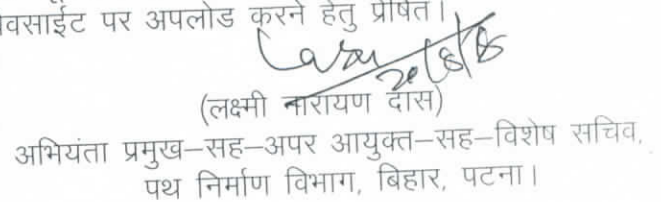 वसाईट पर अपलोड करने हेतु प्रेषित।
(लक्ष्मी नारायण दास)
अभियंता प्रमुख–सह–अपर आयुक्त–सह–विशेष सचिव,
पथ निर्माण विभाग, बिहार, पटना।